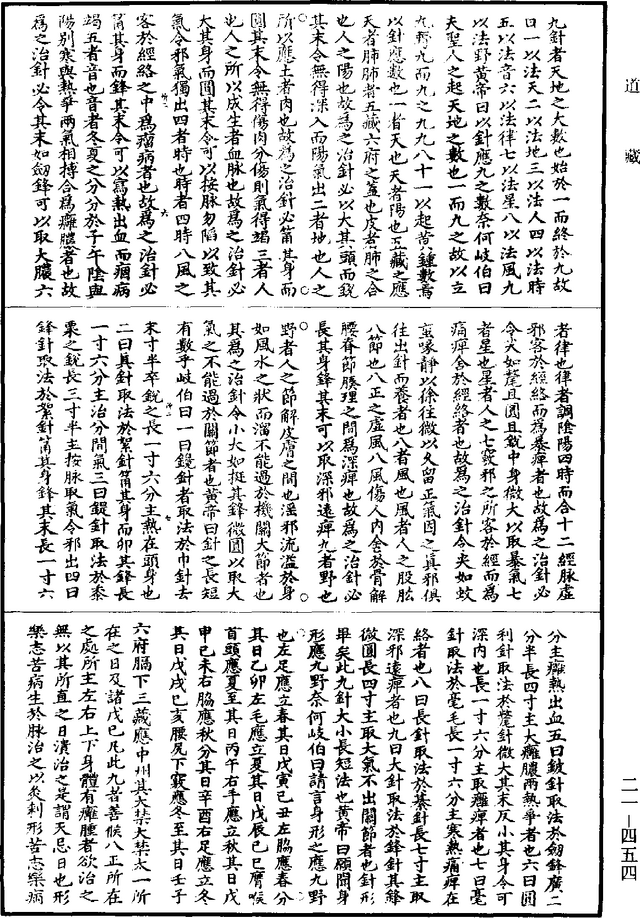 道藏
九針者天地之大數也始於一而終於九故
曰一以法天二以法地三以法人四以法時
五以法音六以法律七以法星八以法風九
以法野黄帝曰以針應九之數奈何岐伯曰
夫聖人之起天地之數也一而九之故以立
九野九而九之九九八十一以起黄鍾數焉
以針應數也一者天也天者陽也五藏之應
天者肺肺者五藏六府之蓋也皮者肺之合
也人之陽也故爲之治針必以大其頭而銳
其末令無得深入而陽氣出二者地也人之
所以應土者肉也故爲之治針必筩其身而
圓其末令無得傷肉分傷則氣得竭三者人
也人之所以成生者血脉也故爲之治針必
大其身而圓其末令可以按脉勿陷以致其
氣令邪氣獨出四者時也時者四時八風之
客於經絡之中爲瘤病者也故爲之治針必
筩其身而鋒其末令可以寫熱出血而痼病
竭五者音也音者冬夏之分分於子午陰與
陽别寒與熱爭兩氣相搏合爲癰膿者也故
爲之治針必令其末如劒鋒可以取大膿六
者律也律者調陰陽四時而合十二經脉虛
邪客於經絡而爲暴痺者也故爲之治針必
令尖如氂且圓且銳中身微大以取暴氣七
者星也星者人之七竅邪之所客於經而爲
痛痺舍於經絡者也故爲之治針令尖如蚊
䖟喙靜以徐往微以久留正氣因之真邪俱
往出針而養者也八者風也風者人之股肱
八節也八正之虛風八風傷人内舍於骨解
腰脊節腠理之間爲深痺也故爲之治針必
長其身鋒其末可以取深邪遠痺九者野也
野者人之節解皮膚之間也淫邪流溢於身
如風水之狀而溜不能過於機關大節者也
其爲之治針令小大如挺其鋒微圓以取大
氣之不能過於關節者也黄帝曰針之長短
有數乎岐伯曰一曰鑱針者取法於巾針去
末寸半卒銳之長一寸六分主熱在頭身也
二曰員針取法於絮針筩其身而卵其鋒長
一寸六分主治分間氣三曰鍉針取法於黍
粟之銳長三寸半主按脉取氣令邪出四曰
鋒針取法於絮針筩其身鋒其末長一寸六
分主癰熱出血五曰鈹針取法於劒鋒廣二
分半長四寸主大癰膿兩熱爭者也六曰圓
利針取法於氂針微大其末反小其身令可
深内也長一寸六分主取癰痺者也七曰毫
針取法於毫毛長一寸六分主寒熱痛痺在
絡者也八曰長針取法於綦針長七寸主取
深邪遠痺者也九曰大針取法於鋒針其鋒
微圓長四寸主取大氣不出關節者也針形
畢矣此九針大小長短法也黄帝曰願聞身
形應九野奈何岐伯曰請言身形之應九野
也左足應立春其日戊寅己丑左脇應春分
其日乙卯左毛應立夏其日戊辰己巳膺喉
首頭應夏至其日丙午右手應立秋其日戊
申己未右脇應秋分其日辛酉右足應立冬
其日戊戌己亥腰尻下竅應冬至其日壬子
六府膈下三藏應中州其大禁大禁太一所
在之日及諸戊己凡此九者善候八正所在
之處所主左右上下身體有癰腫者欲治之
無以其所直之日潰治之是謂天忌日也形
樂志苦病生於脉治之以灸刺形苦志樂病
二一－四五四